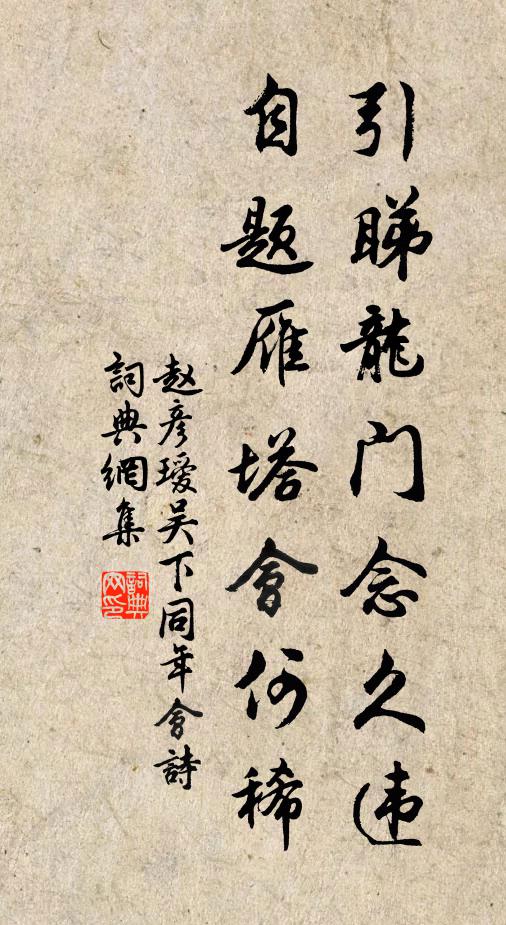 引睇龍门念久违
自题雁塔會何稀
赵彦瑷吴下同年會詩
詞典網集
詞典网印